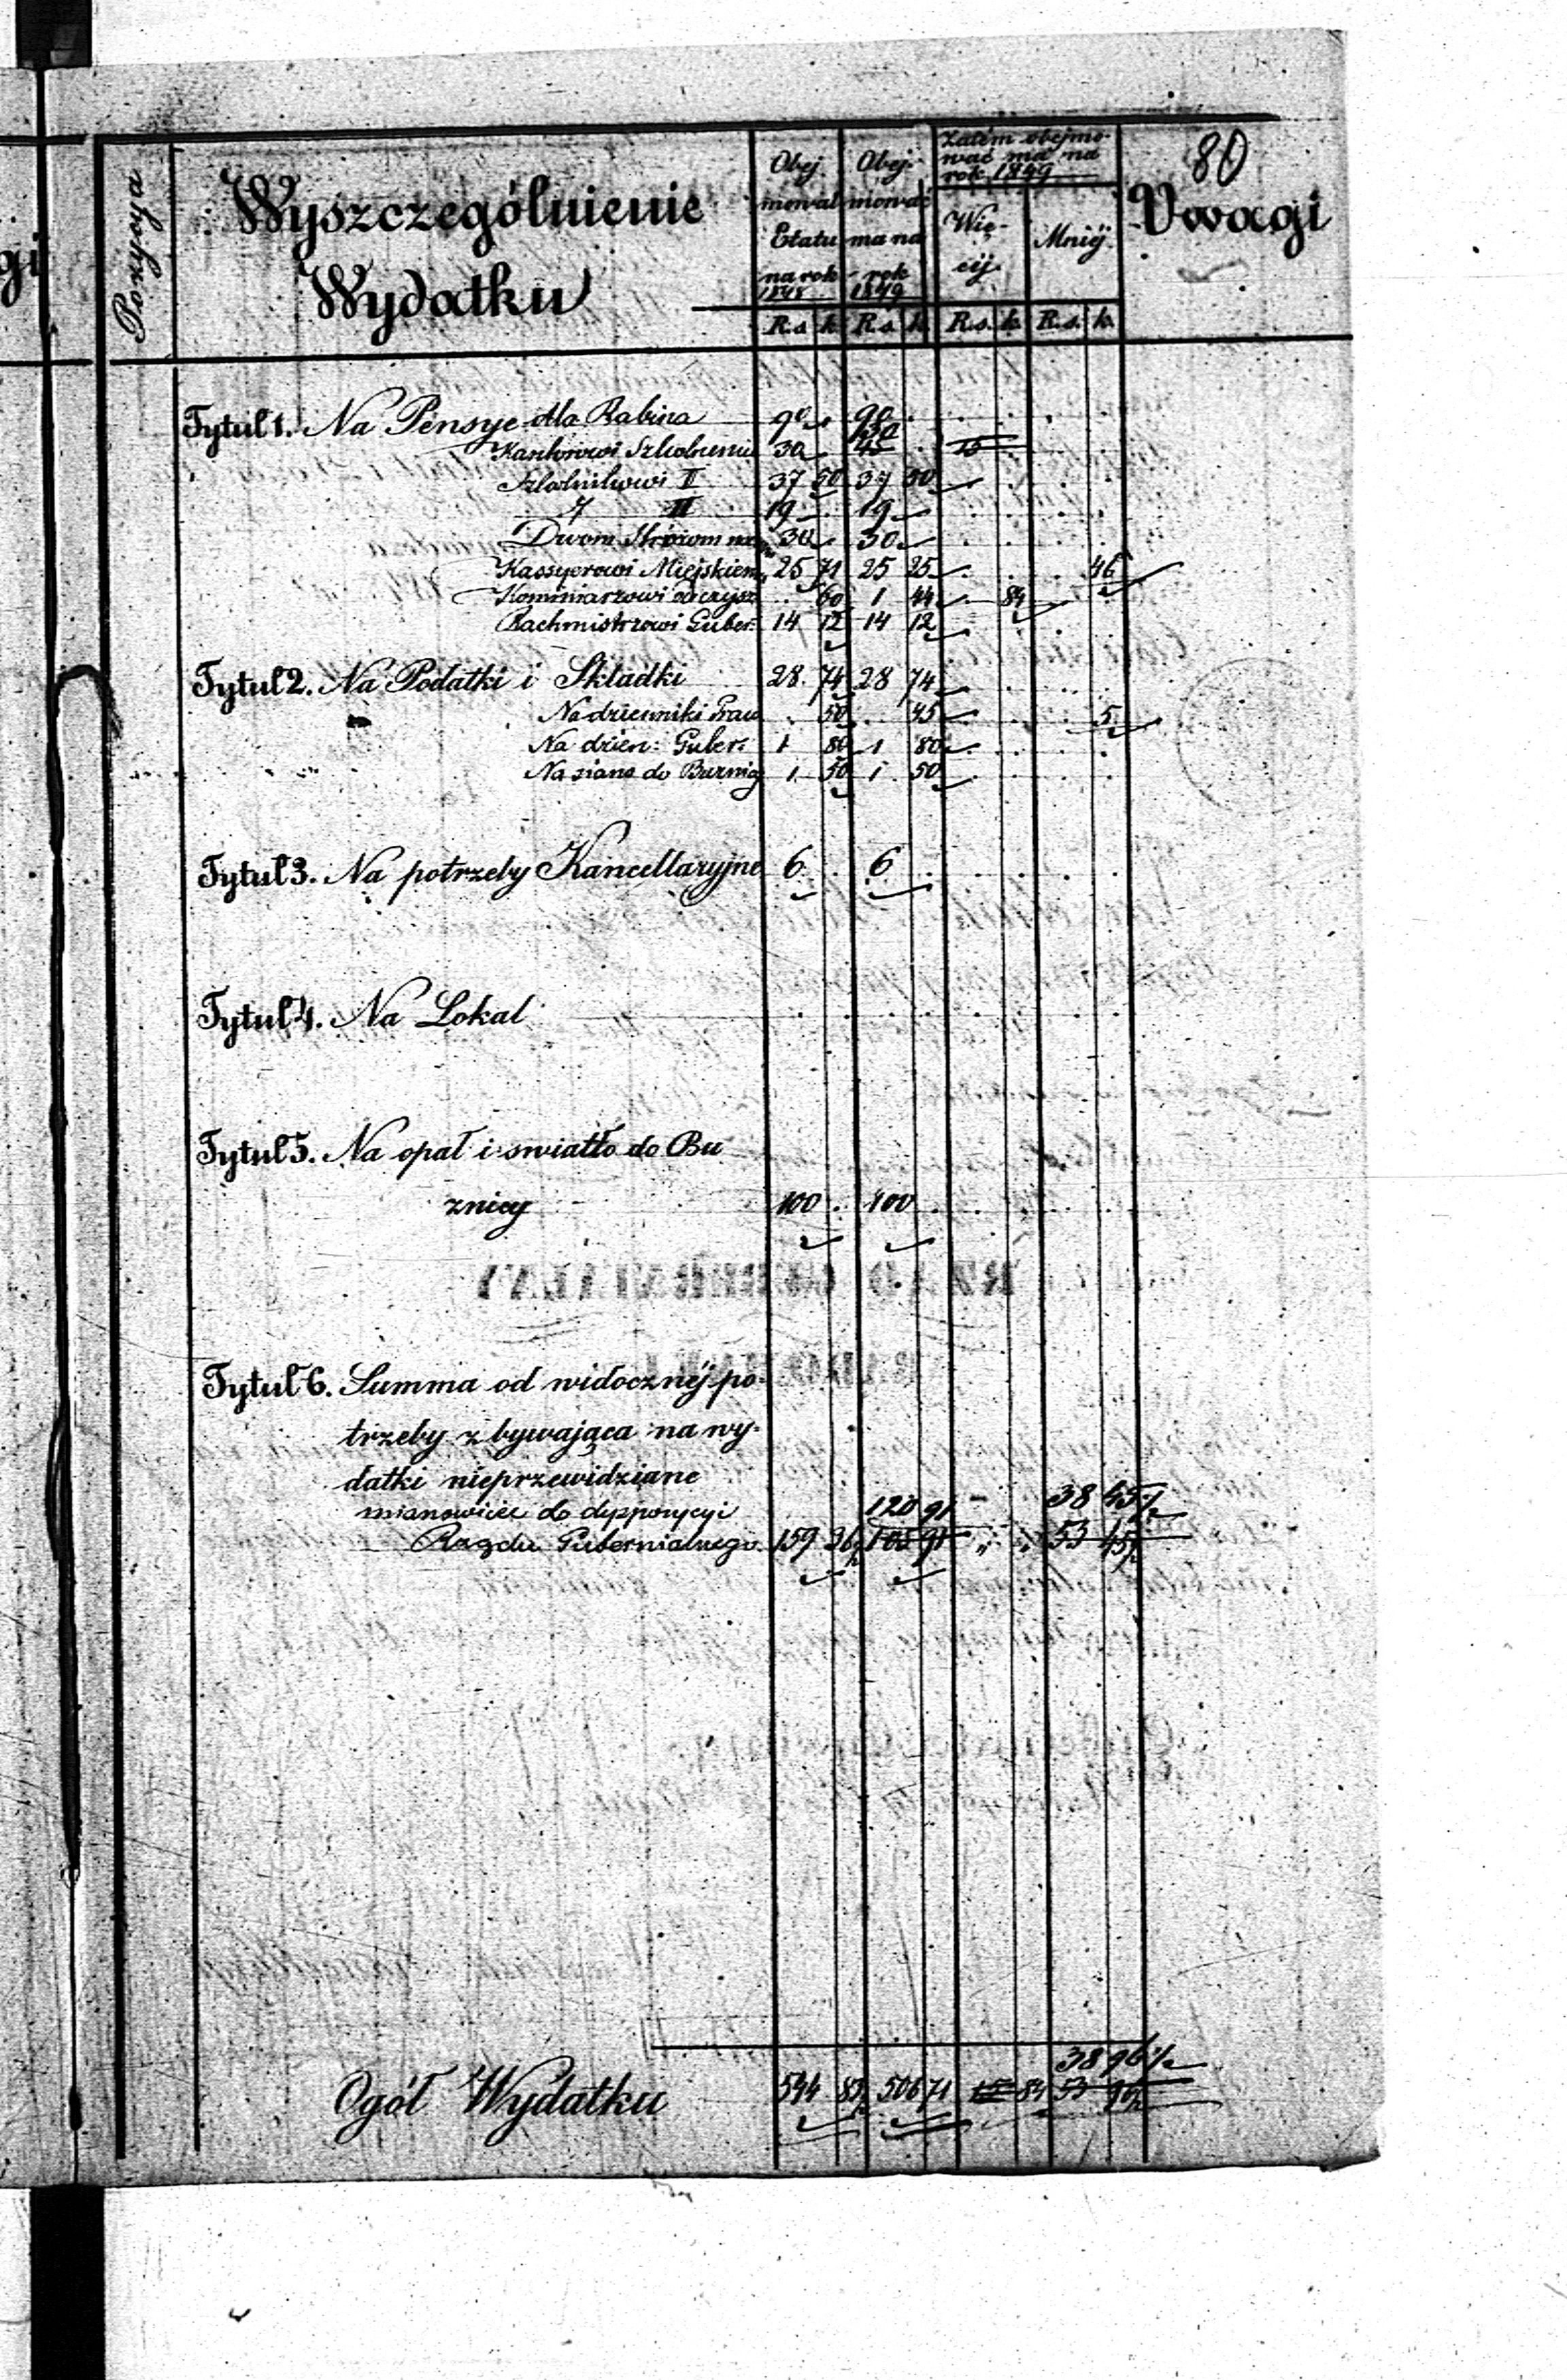 80
Pozycya
Wyszczególnienie
Wydatku
Obej
mował
Etatu
na rok
1848
Obej-
mować
ma na
rok
1849
Zatem obejmo-
wać ma na
rok 1849
Wię-
céj
Mniéj
Uwagi
R.s. k. R.s. k. R.s. k. R.s. k.
Tytuł 1. Na Pensye dla Rabina 90 . 90 .
30
Kantorowi Szkolnemu 30 45 15
Szkolnikowi I 37 50 37 50
" II 19 19
Dwom Stróżom 30 30
Kassyerowi Miejskiemu 25 71 25 25 46
Kominiarzowi od czysz 60 1 44 84
Rachmistrzowi Guber: 14 12 14 12
Tytuł 2. Na Podatki i Składki 28 74 28 74
Na dzienniki Praw 50 45 5
Na dzien: Guber: 1 80 1 80
Na siano do 1 50 1 50
Tytuł 3. Na potrzeby Kancellaryjne 6 6
Tytuł 4. Na Lokal
Tytuł 5. Na opał i swiatło do Bu
znicy 100 . 100 .
Tytuł 6. Summa od widocznéj po-
trzeby zbywająca na wy-
datki nieprzewidziane
mianowicie do dyspozycyi 120 91 - 38 45½
Rządu Gubernialnego 159 36½ 105 91 " " 53 45½
38 96½
Ogół Wydatku 544 83½ 506 71 15 84 53 96½